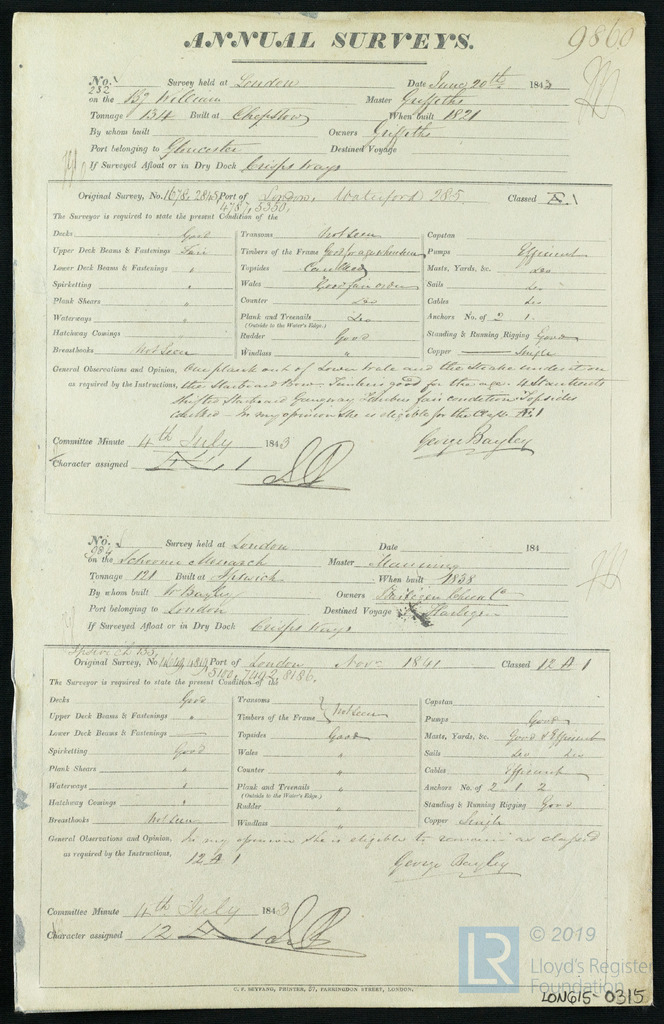 ANNUAL SURVEYS.
9860
No. 232 Survey held at London Date June 20th 1843
on the Bg William Master Griffiths
Tonnage 134 Built at Chepstow When built 1821
By whom built Owners Griffiths
Port belonging to Gloucester Destined Voyage
If Surveyed Afloat or in Dry Dock Crisps Ways
Original Survey, No. 1678, 2845 Port of London, Waterford 285. Classed Æ 1
4787, 5350,
The Surveyor is required to state the present Condition of the
Decks Good Transoms Not Seen Capstan
Upper Deck Beams & Fastenings Fair Timbers of the Frame Good for age where seen Pumps Efficient
Lower Deck Beams & Fastenings " Topsides Caulked Masts, Yards, &c. Do
Spirketting " Wales Good fair order Sails Do
Plank Shears " Counter Do Cables Do
Waterways " Plank and Treenails Do Anchors No. of 2 1
(Outside to the Water's Edge.)
Hatchway Comings " Rudder Good Standing & Running Rigging Good
Breasthooks Not Seen Windlass " Copper Single
General Observations and Opinion, One plank out of Lower Wale and the Strake under it on
as required by the Instructions, the Starboard Bow - Timbers good for the age. 4 Stanchions
shifted Starboard Gangway Timbers fair condition Topsides
caulked - In my opinion she is eligible for the Class Æ 1
Committee Minute 4th July 1843 George Bayley
Character assigned Æ 1
No. Survey held at London Date 184
on the Schooner Monarch Master Manning
Tonnage 121 Built at Ipswich When built 1838
By whom built W Bayley Owners
Port belonging to London Destined Voyage Harlingen
If Surveyed Afloat or in Dry Dock Crisps Ways
Ipswich 133,
Original Survey, No. Port of London Nov. 1841 Classed 12 A 1
5100, 7492, 8186.
The Surveyor is required to state the present Condition of the
Decks Good Transoms Capstan
Upper Deck Beams & Fastenings " Timbers of the Frame Not Seen Pumps Good
Lower Deck Beams & Fastenings Topsides Good Masts, Yards, &c. Good & Efficient
Spirketting Good Wales " Sails Do Do
Plank Shears " Counter " Cables Efficient
Waterways " Plank and Treenails " Anchors No. of 2 1 2
(Outside to the Water's Edge.)
Hatchway Comings " Rudder " Standing & Running Rigging Good
Breasthooks Not Seen Windlass " Copper Single
General Observations and Opinion, In my opinion she is eligible to remain as classed
as required by the Instructions, 12 A 1
George Bayley
Committee Minute 4th July 1843
Character assigned 12 A 1
C. F. SEYFANG, PRINTER, 57, FARRINGDON STREET, LONDON.
LR © 2019
Lloyd's Register
Foundation
LON615-0315